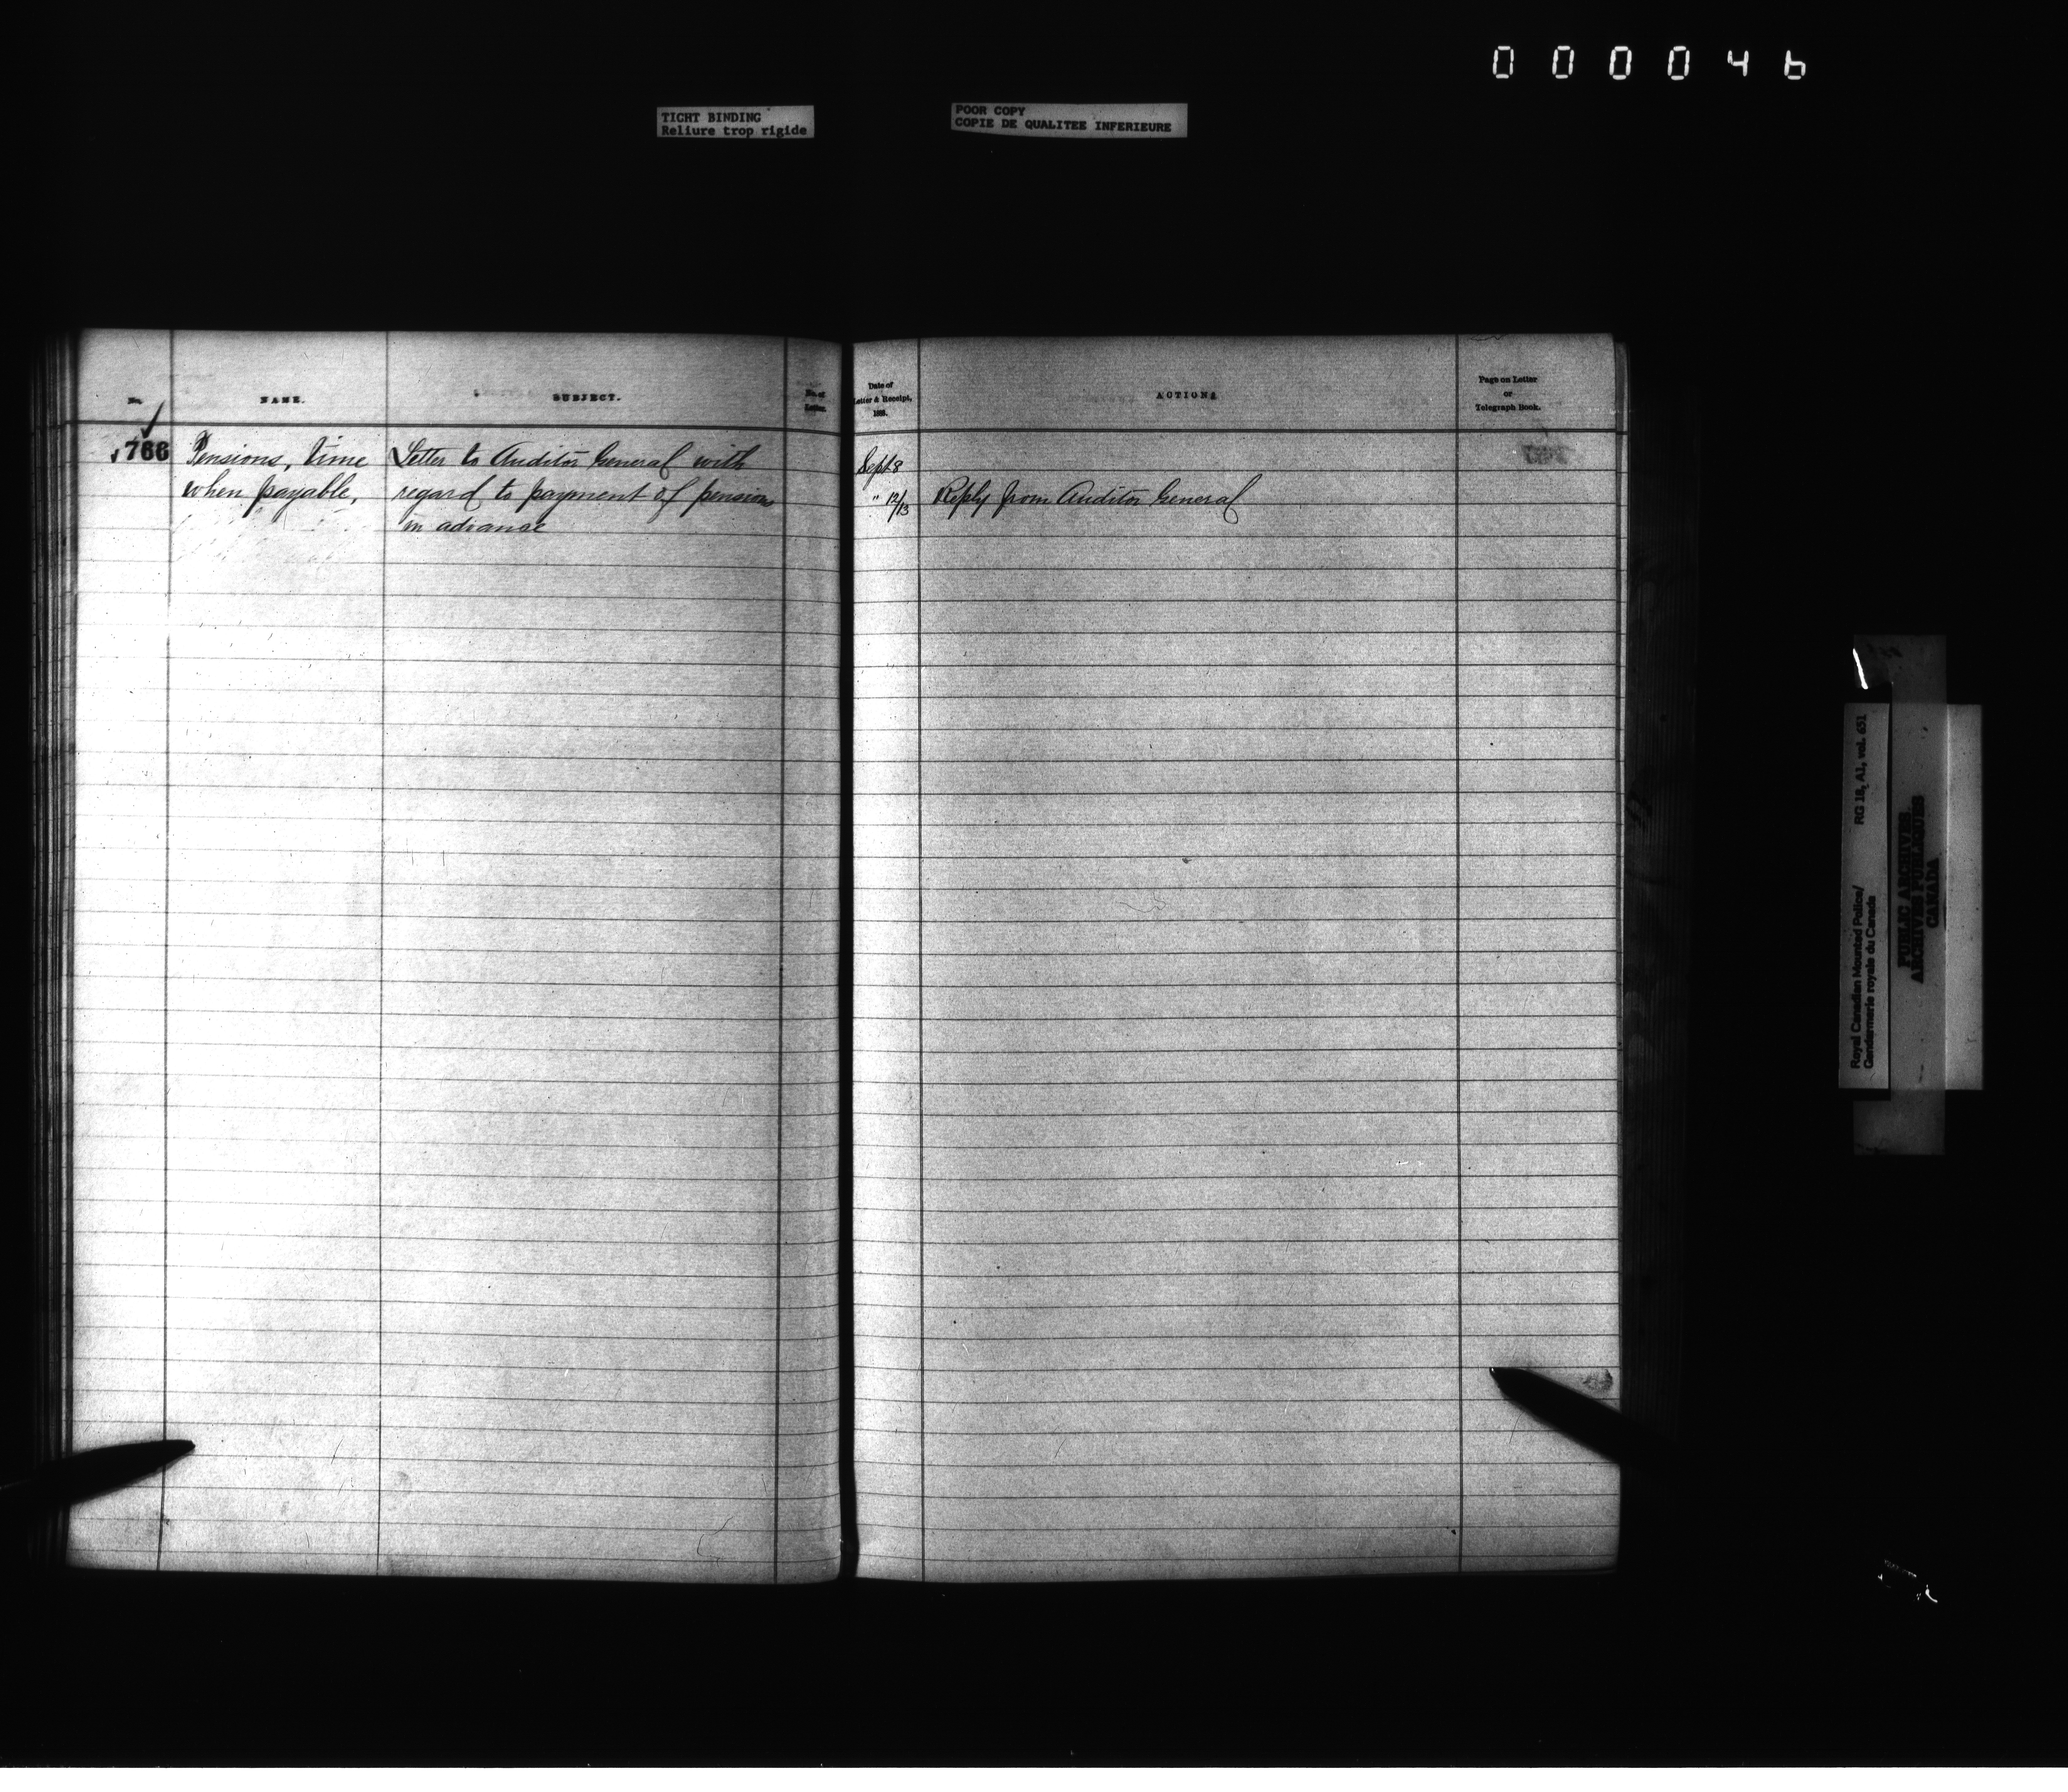 000046
TIGHT BINDING
Reliure trop rigide
POOR COPY
COPIE DE QUALITEE INFERIEURE
No.
NAME.
SUBJECT.
No. of
Letter.
766
Pensions, time
when payable,
Letter to Auditor General with
regard to payment of pensions
in advance
Date of
Letter & Receipt,
ACTION.
Page on Letter
or
Telegraph Book.
Sept 8
" 12/13
Reply from Auditor General
Royal Canadian Mounted Police/
Gendarmerie royale du Canada
RG 18, A1, vol. 651
PUBLIC ARCHIVES
ARCHIVES PUBLIQUES
CANADA